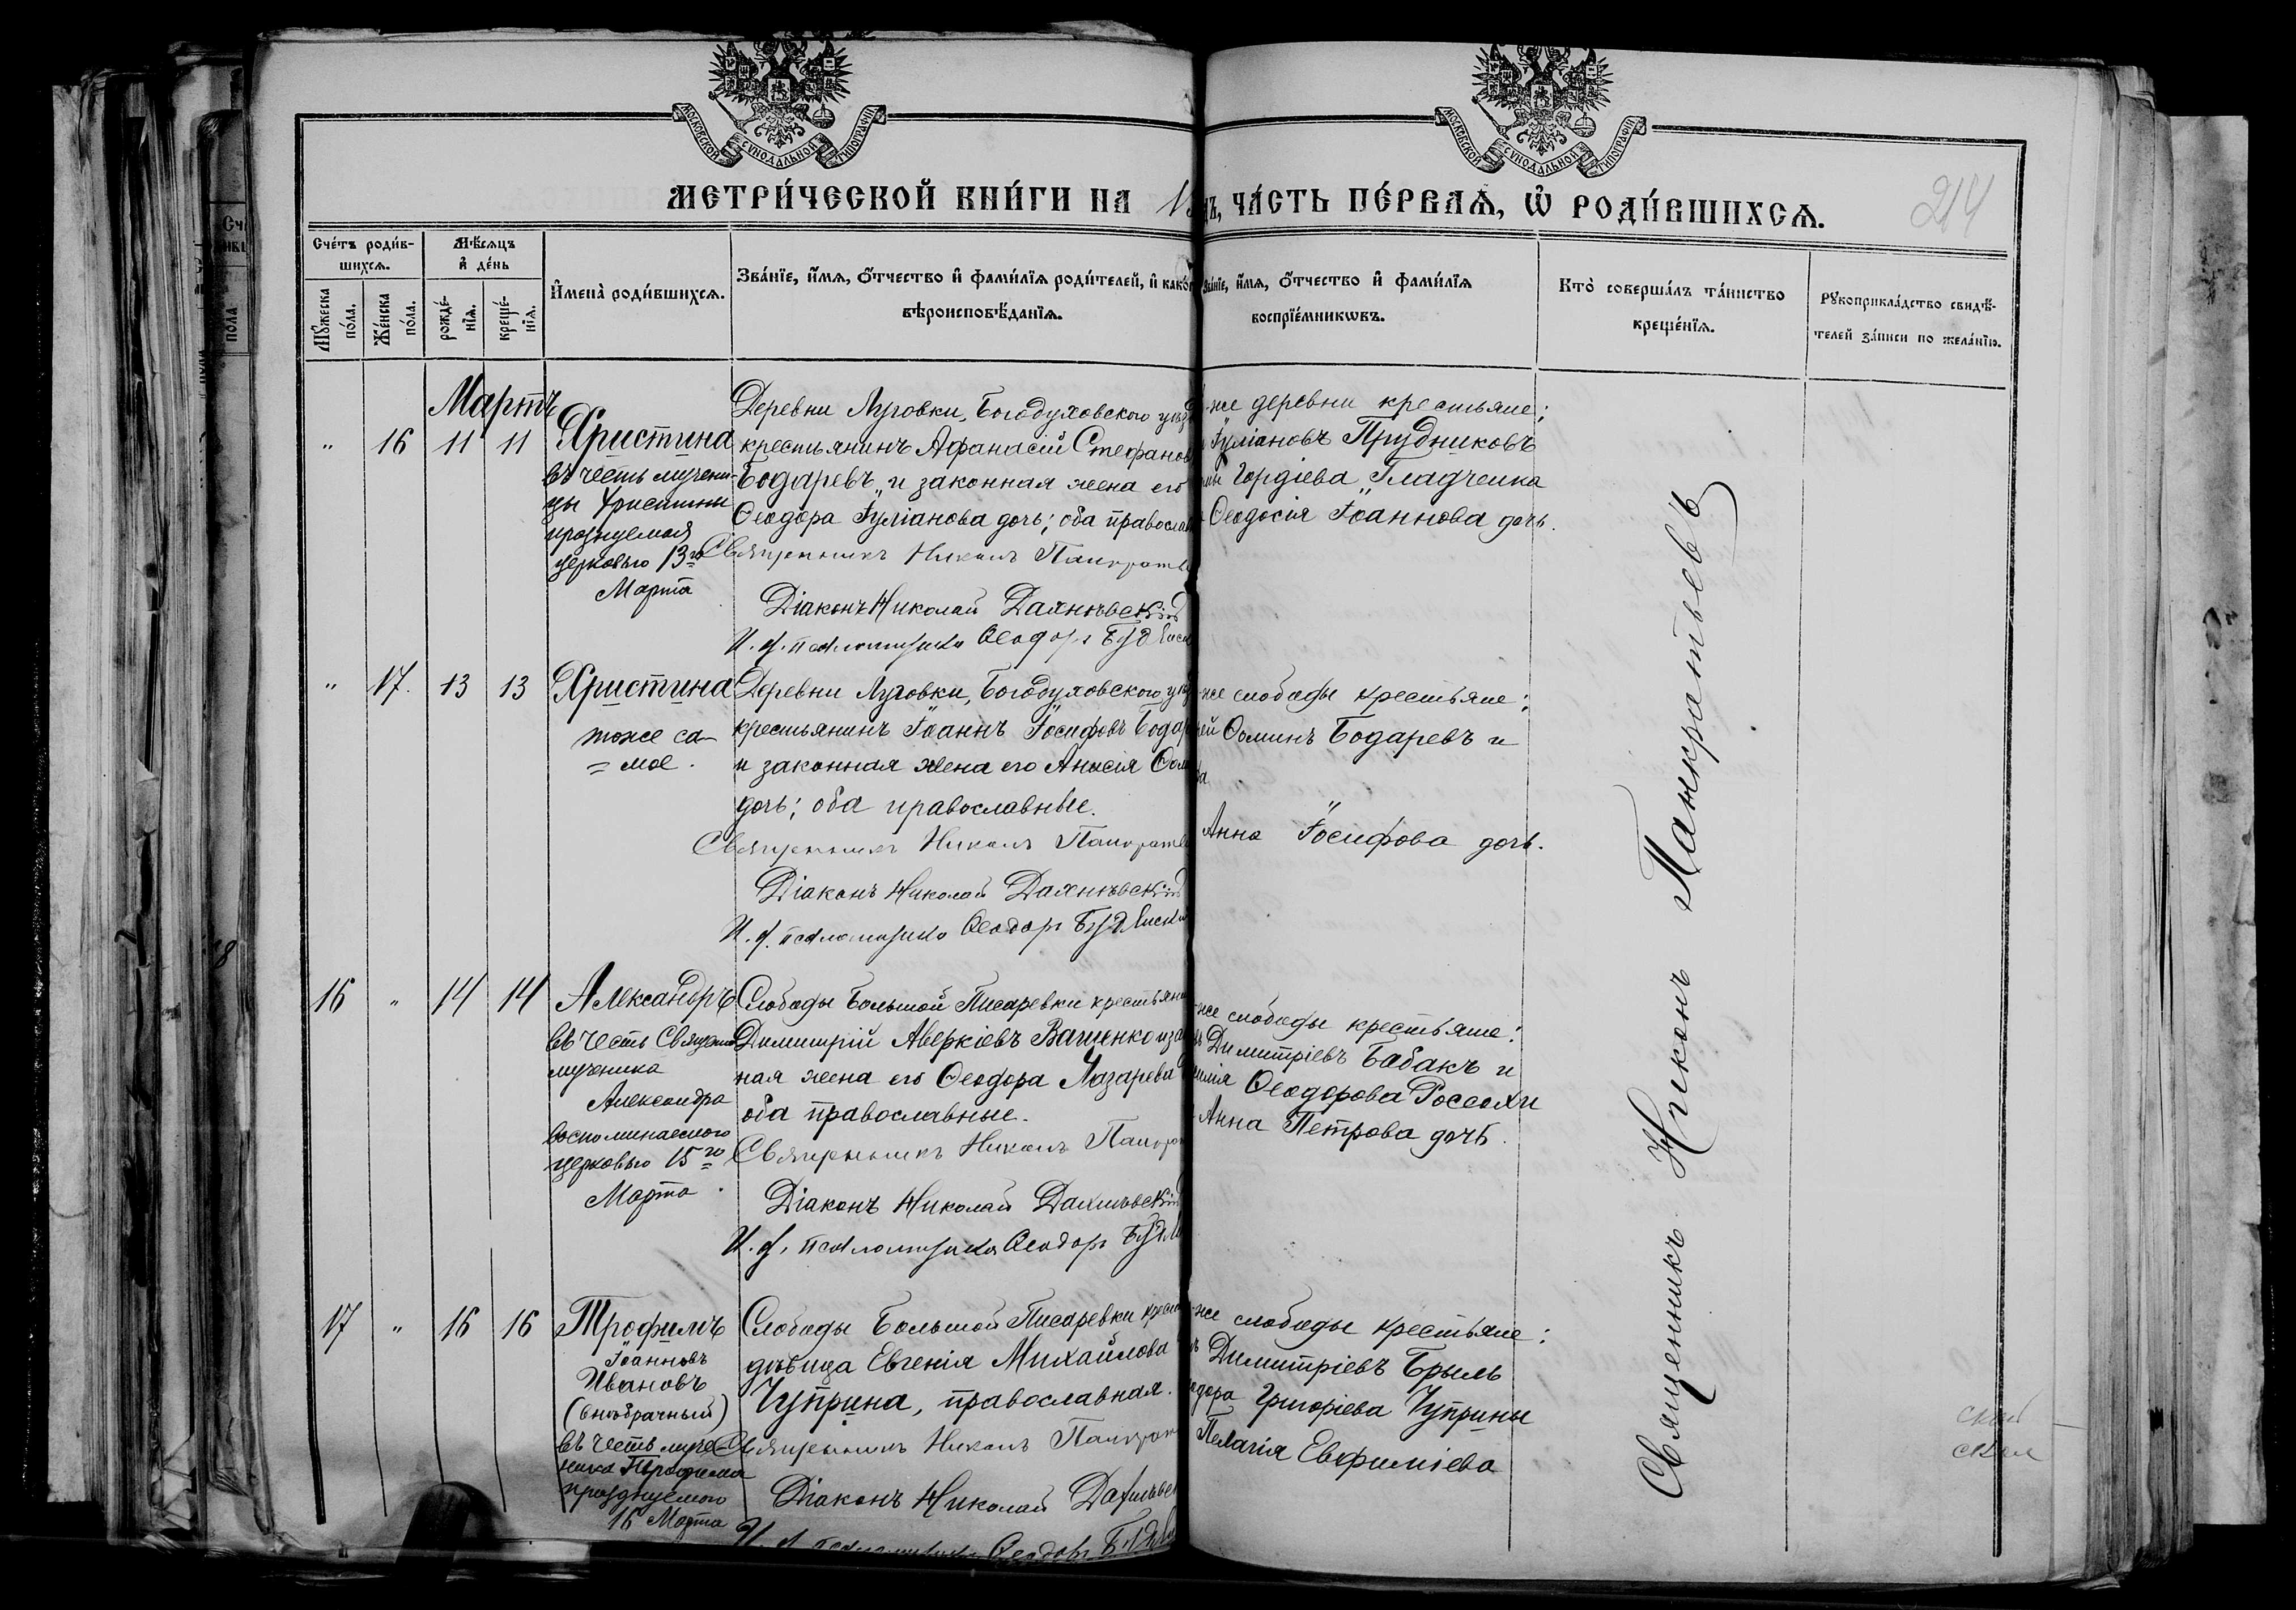 МОСКОВСКОЙ СѴНОДАЛЬНОЙ ТИПОГРАФІИ
МОСКОВСКОЙ СѴНОДАЛЬНОЙ ТИПОГРАФІИ
МЕТРИ́ЧЕСКОЙ КНИ́ГИ НА 1
ЧА́СТЬ ПЕ́РВАѦ, Ѡ҆ РОДИ́ВШИХСѦ.
214
Сче́тъ роди́в-
шихсѧ.
Мѣ́сѧцъ
и҆ де́нь
Мꙋ́жеска
по́ла.
Же́нска
по́ла.
рожде́-
нїѧ.
креще́-
нїѧ.
И҆мена̀ роди́вшихсѧ.
Зва́нїе, и҆́мѧ, ѻ҆́тчество и҆ фами́лїѧ роди́телей, и҆ како́г
вѣроисповѣ́данїѧ.
зва́нїе, и҆́мѧ, ѻ҆́тчество и҆ фами́лїѧ
воспрїе́мникѡвъ.
Кто̀ соверша́лъ та́инство
креще́нїѧ.
Рꙋкоприкла́дство свидѣ́-
телей за́писи по жела́нїю.
Мартъ
" 16 11 11
Христина
въ честь мучени-
цы Христины
празнуемая
церковью 13го
Марта
Деревни Луговки, Богодуховского уѣзд
крестьянинъ Афанасій Стефанов
Бодаревъ и законная жена его
Ѳеодора Іуліанова дочь; оба православ
Священникъ Никонъ Панкратье
Діаконъ Николай
И. д. псаломщика Ѳеодоръ
же деревни крестьяне;
Іуліановъ Прудниковъ
Гордіева Гладченка
Ѳеодосія Іоаннова дочь.
" 17. 13 13
Христина
тоже са-
= мое.
Деревни Луговки, Богодуховского уѣз
крестьянинъ Іоаннъ Іосифовъ Бодар
и законная жена его Анисія Ѳом
дочь; оба православные.
Священникъ Никонъ Панкратье
Діаконъ Николай
И. д. псаломщика Ѳеодоръ
же слободы крестьяне;
ей Ѳоминъ Бодаревъ и
Анна Іосифова дочь.
16 " 14 14
Александръ
въ честь Священно
мученика
Александра
воспоминаемого
церковью 15го
Марта
Слободы Большой Писаревки крестьяни
Димитрій Аверкіевъ Ващенко и за
ная жена его Ѳеодора Лазарева
оба православные.
Священникъ Никонъ Панкра
Діаконъ Николай
И. д. псаломщика Ѳеодоръ
же слободы крестьяне:
Димитріевъ Бабакъ и
Ѳеодорова Россохи
Анна Петрова дочь.
17 " 16 16
Трофимъ
Іоанновъ
Ивановъ
(внѣбрачный)
въ честь муче-
ника Трофима
празднуемого
16 Марта
Слободы Большой Писаревки крест
дѣвица Евгенія Михайлова
Чуприна, православная.
Священникъ Никонъ Панкрат
Діаконъ Николай
И. д. псаломщика Ѳеодоръ
же слободы крестьяне:
Димитріевъ Брыль
одора Григоріева Чуприны
Пелагія Евфиміева
Священникъ Никонъ Панкратьевъ